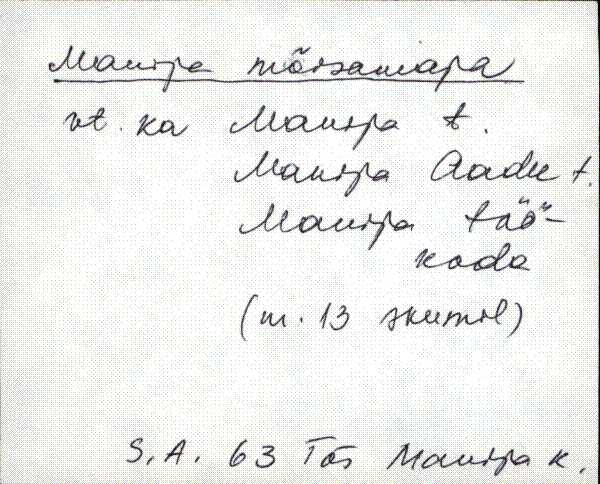 Mansja mõisamaja
vt. ka Mansja t.
Mansja Aadu t.
Mansja töö-
koda
(m. 13 skeemil)
S.A. 63 Tõs Mansja k.